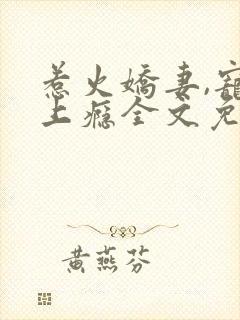 惹火嬌妻,寵
上癮全文免
黄燕芬